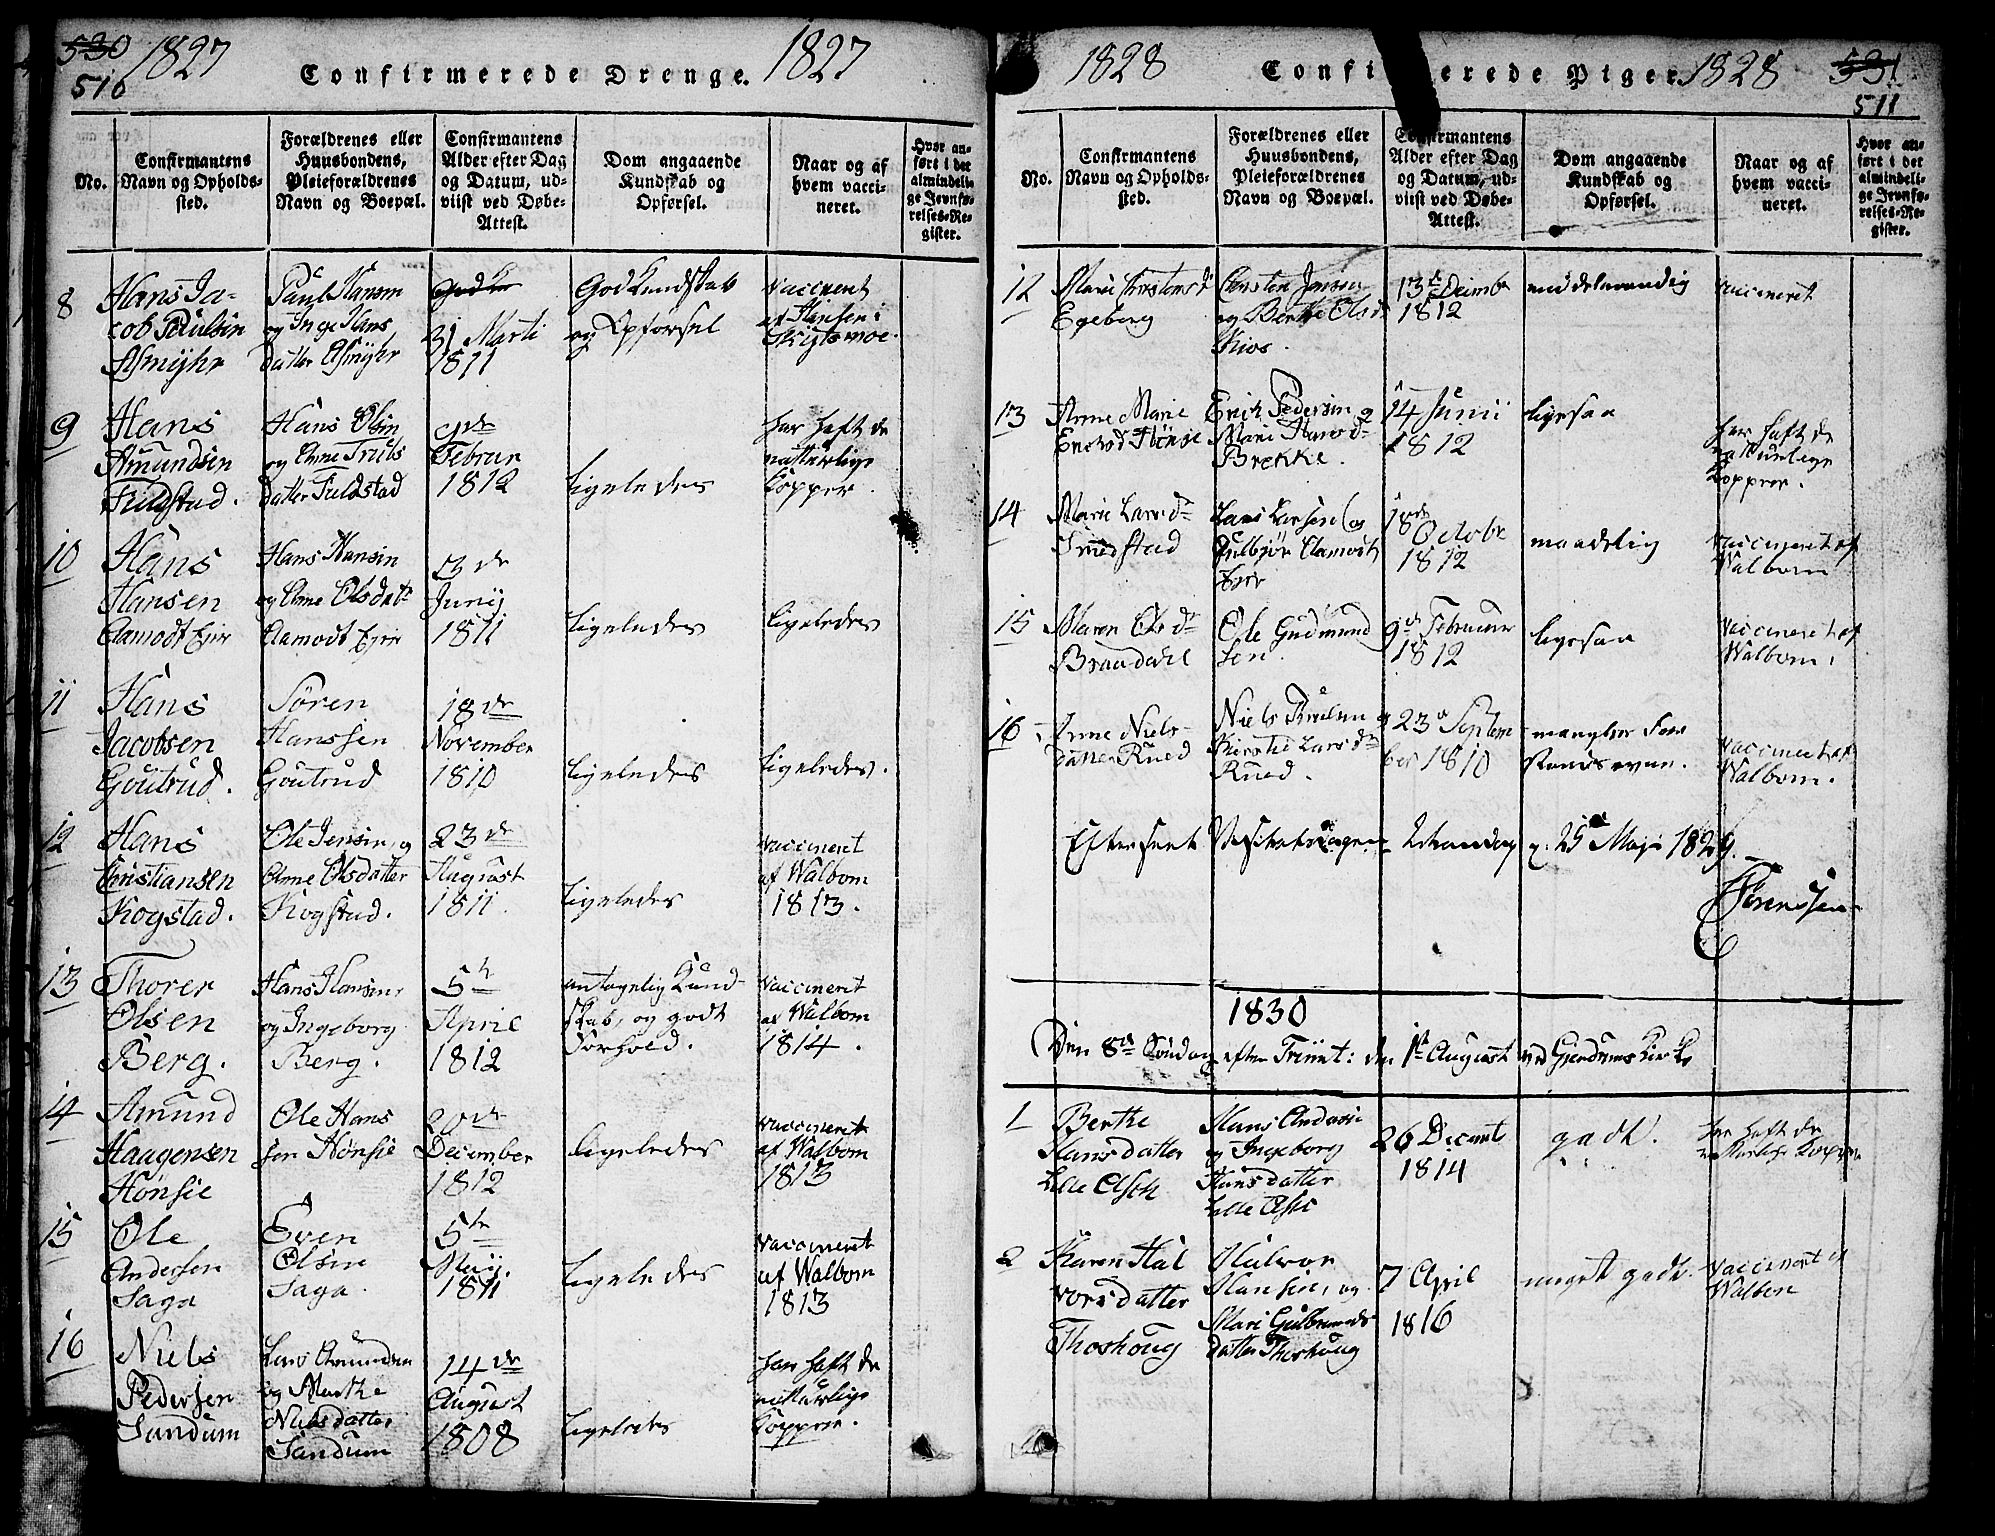 530 1827 Confirmerede Drenge. 1827
510
No.
Confirmantens
Navn og Opholds-
sted.
Forældrenes eller
Huusbondens,
Pleieforældrenes
Navn og Boepæl.
Confirmantens
Alder efter Dag
og Datum, ud-
viist ved Døbe-
Attest.
Dom angaaende
Kundskab og
Opførsel.
Naar og af
hvem vacci-
neret.
Hvor an-
ført i det
almindeli-
ge Jevnfø-
relses-Re-
gister.
8
Hans Ja-
cob Paulsen
Asmyhr
Paul Hansen
og Inge Hans
datter Asmyhr
31 Marti
1811
God Kundskab
og Opførsel
vaccineret
af Hansen i
9
Hans
Amundsen
Fieldstad.
Hans Olsen
og Anne Truls
datter Fieldstad
Februar
1812
ligeledes
har haft de
naturlige
Copper.
10
Hans
Hansen
Aamodt Eier
Hans Hansen
og Anne Olsdatr
Aamodt Eier
13de
Junij
1811
ligeledes
ligeledes
11
Hans
Jacobsen
Goutrud.
Søren
Hanssen
Goutrud
18de
November
1810
ligeledes
ligeledes.
12
Hans
Christiansen
Kogstad.
Ole Jensen, og
Anne Olsdatter
Kogstad.
23de
August
1811.
ligeledes
vaccineret
af Walbom
1813.
13
Thorer
Olsen
Berg.
Hans Hansen,
og Ingeborg
Berg.
5te
April
1812
antagelig Kund-
skab, og godt
Forhold.
vaccineret
af Walbom
1814.
14
Amund
Haagensen
Hønsie
Ole Hans
sen Hønsie
20de
December
1812
ligeledes
vaccineret
af Walbom
1813
15
Ole
Andersen
Saga
Even
Olsen
Saga.
5te
Maij.
1811
ligeledes
vaccineret
af Walbom
1813
16
Niels
Pedersen
Sandum
Lars Amundsen
og Marthe
Nielsdatter
Sandum
14de
August
1808
ligeledes
har haft de
naturlige
Copper.
1828 Confi erede Piger. 1828 531
511
No.
Confirmantens
Navn og Opholds-
sted.
Forældrenes eller
Huusbondens,
Pleieforældrenes
Navn og Boepæl.
Confirmantens
Alder efter Dag
og Datum, ud-
viist ved Døbe-
Attest.
Dom angaaende
Kundskab og
Opførsel.
Naar og af
hvem vacci-
neret.
Hvor an-
ført i det
almindeli-
ge Jevnfø-
relses-Re-
gister.
12
Egeberg
Christen Jensen
og Berthe Olsd
13de Decembr
1812
middelmaadig
vaccineret
13
Anne Marie
Ericsdr Hønsie
Erich Pedersen og
Mari Hansdr
Brekke.
14 Junii
1812
ligesaa
har haft de
naturlige
Copper.
14
Marie Larsdr
Smedstad
Lars Larsen og
Gulbjør Aamodt
Eier
18de Octobr
1812
maadelig
vaccineret af
Walbom
15
Maren Olsdr
Braadahl
Ole Gudmund
sen.
9de Februar
1812
ligesaa
vaccineret af
Walbom.
16.
Anne Niels-
datter Rued
Niels og
Kirstie Larsdr
Rued.
23de Septem
ber 1810
mangler For
stands evne.
vaccineret af
Walbom.
Efterseet Visitatsdagen Mandag d. 25 Maji 1829.
Sørenssen
1830
Den 8de Søndag efter Trinit: den 1ste August ved Gjerdrums Kirke
1
Berthe
Hansdatter
Lille Ask
Hans Anders
og Ingeborg
Hansdatter
Lille Ask
26 Decembr
1814
godt.
har haft de
naturlige Copper
2
Karen Hal
vorsdatter
Thoshoug
Halvor
Hansen, og
Mari Gulbrands
datter Thoshoug
7 April
1816
meget godt.
vaccineret af
Walbom